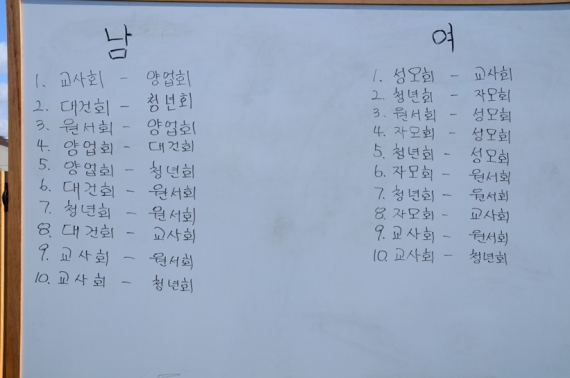 남
1. 교사회 - 양업회
2. 대건회 - 청년회
3. 원서회 - 양업회
4. 양업회 - 대건회
5. 양업회 - 청년회
6. 대건회 - 원서회
7. 청년회 - 원서회
8. 대건회 - 교사회
9. 교사회 - 원서회
10. 교사회 - 청년회
여
1. 성모회 - 교사회
2. 청년회 - 자모회
3. 원서회 - 성모회
4. 자모회 - 성모회
5. 청년회 - 성모회
6. 자모회 - 원서회
7. 청년회 - 원서회
8. 자모회 - 교사회
9. 교사회 - 원서회
10. 교사회 - 청년회